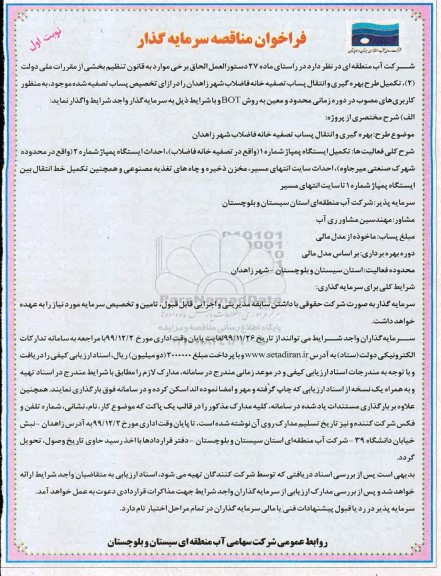 نوبت اول
فراخوان مناقصه سرمایه گذار
شرکت آب منطقه ای در نظر دارد در راستای ماده ۲۷ دستورالعمل الحاق برخی موارد به قانون تنظیم بخشی از مقررات ملی دولت
(۲)، تکمیل طرح بهره گیری و انتقال پساب تصفیه خانه فاضلاب شهر زاهدان را در ازای تخصیص پساب تصفیه شده موجود، به منظور
کاربری‌های مصوب در دوره زمانی محدود و معین به روش BOT و با شرایط ذیل به سرمایه گذار واجد شرایط واگذار نماید:
الف) شرح مختصری از پروژه:
موضوع طرح: بهره گیری و انتقال پساب تصفیه خانه فاضلاب شهر زاهدان
شرح کلی فعالیت ها: تکمیل ایستگاه پمپاژ شماره ۱ (واقع در تصفیه خانه فاضلاب)، احداث ایستگاه پمپاژ شماره ۲ (واقع در محدوده
شهرک صنعتی میرجاوه)، احداث سایت انتهای مسیر، مخزن ذخیره و چاه های تغذیه مصنوعی و همچنین تکمیل خط انتقال بین
ایستگاه پمپاژ شماره ۱ تا سایت انتهای مسیر
سرمایه پذیر: شرکت آب منطقه‌ای استان سیستان و بلوچستان
مشاور: مهندسین مشاور ری آب
مبلغ پساب: ماخوذه از مدل مالی
دوره بهره برداری: بر اساس مدل مالی
محدوده فعالیت: استان سیستان و بلوچستان - شهر زاهدان
شرایط کلی برای سرمایه گذاری:
سرمایه گذار به صورت شرکت حقوقی با داشتن سابقه مدیریتی و اجرایی قابل قبول، تامین و تخصیص سرمایه مورد نیاز را به عهده
خواهد داشت.
سرمایه گذاران واجد شرایط می توانند از تاریخ ۹۹/۱۱/۲۶ لغایت پایان وقت اداری مورخ ۹۹/۱۲/۲ با مراجعه به سامانه تدارکات
الکترونیکی دولت (ستاد) به آدرس www.setadiran.ir و با پرداخت مبلغ ۲۰۰۰۰۰۰ (دو میلیون) ریال، اسناد ارزیابی کیفی را دریافت
و با توجه به مندرجات اسناد ارزیابی کیفی و در موعد زمانی مندرج در سامانه، مدارک لازم را مطابق با شرایط مندرج در اسناد تهیه
و به همراه یک نسخه از اسناد ارزیابی که چاپ گرفته و مهر و امضا نموده اند اسکن کرده و در سامانه فوق بارگذاری نمایند. همچنین
علاوه بر بارگذاری مستندات یاد شده در سامانه، کلیه مدارک مذکور را در قالب یک پاکت که موضوع کار، نام، نشانی، شماره تلفن و
فکس شرکت کننده و نیز تاریخ تسلیم مدارک روی آن نوشته شده است، تا پایان وقت اداری مورخ ۹۹/۱۲/۲ به آدرس زاهدان - نبش
خیابان دانشگاه ۳۹ - شرکت آب منطقه‌ای استان سیستان و بلوچستان - دفتر قراردادها با اخذ رسید حاوی تاریخ وصول، تحویل
گردد.
بدیهی است پس از بررسی اسناد دریافتی که توسط شرکت کنندگان تهیه می شود، اسناد ارزیابی به متقاضیان واجد شرایط ارائه
خواهد شد و پس از بررسی مدارک ارزیابی از سرمایه گذاران واجد شرایط جهت مذاکرات قراردادی دعوت به عمل خواهد آمد.
سرمایه پذیر در رد یا قبول پیشنهادات فنی یا مالی سرمایه گذاران در تمام مراحل اختیار تام دارد.
روابط عمومی شرکت سهامی آب منطقه ای سیستان و بلوچستان